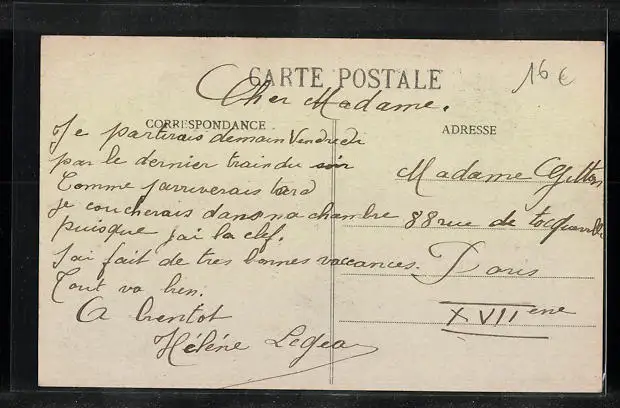 16 €
CARTE POSTALE
Cher Madame.
CORRESPONDANCE
ADRESSE
Je partirais demain Vendredi
par le dernier train du soir
Comme j'arriverais tard
je coucherais dans ma chambre
puisque j'ai la clef.
J'ai fait de tres bonnes vacances.
Tout va bien.
A bientot
Hélène
Madame
88 rue de Tocqueville
Paris
XVII ene